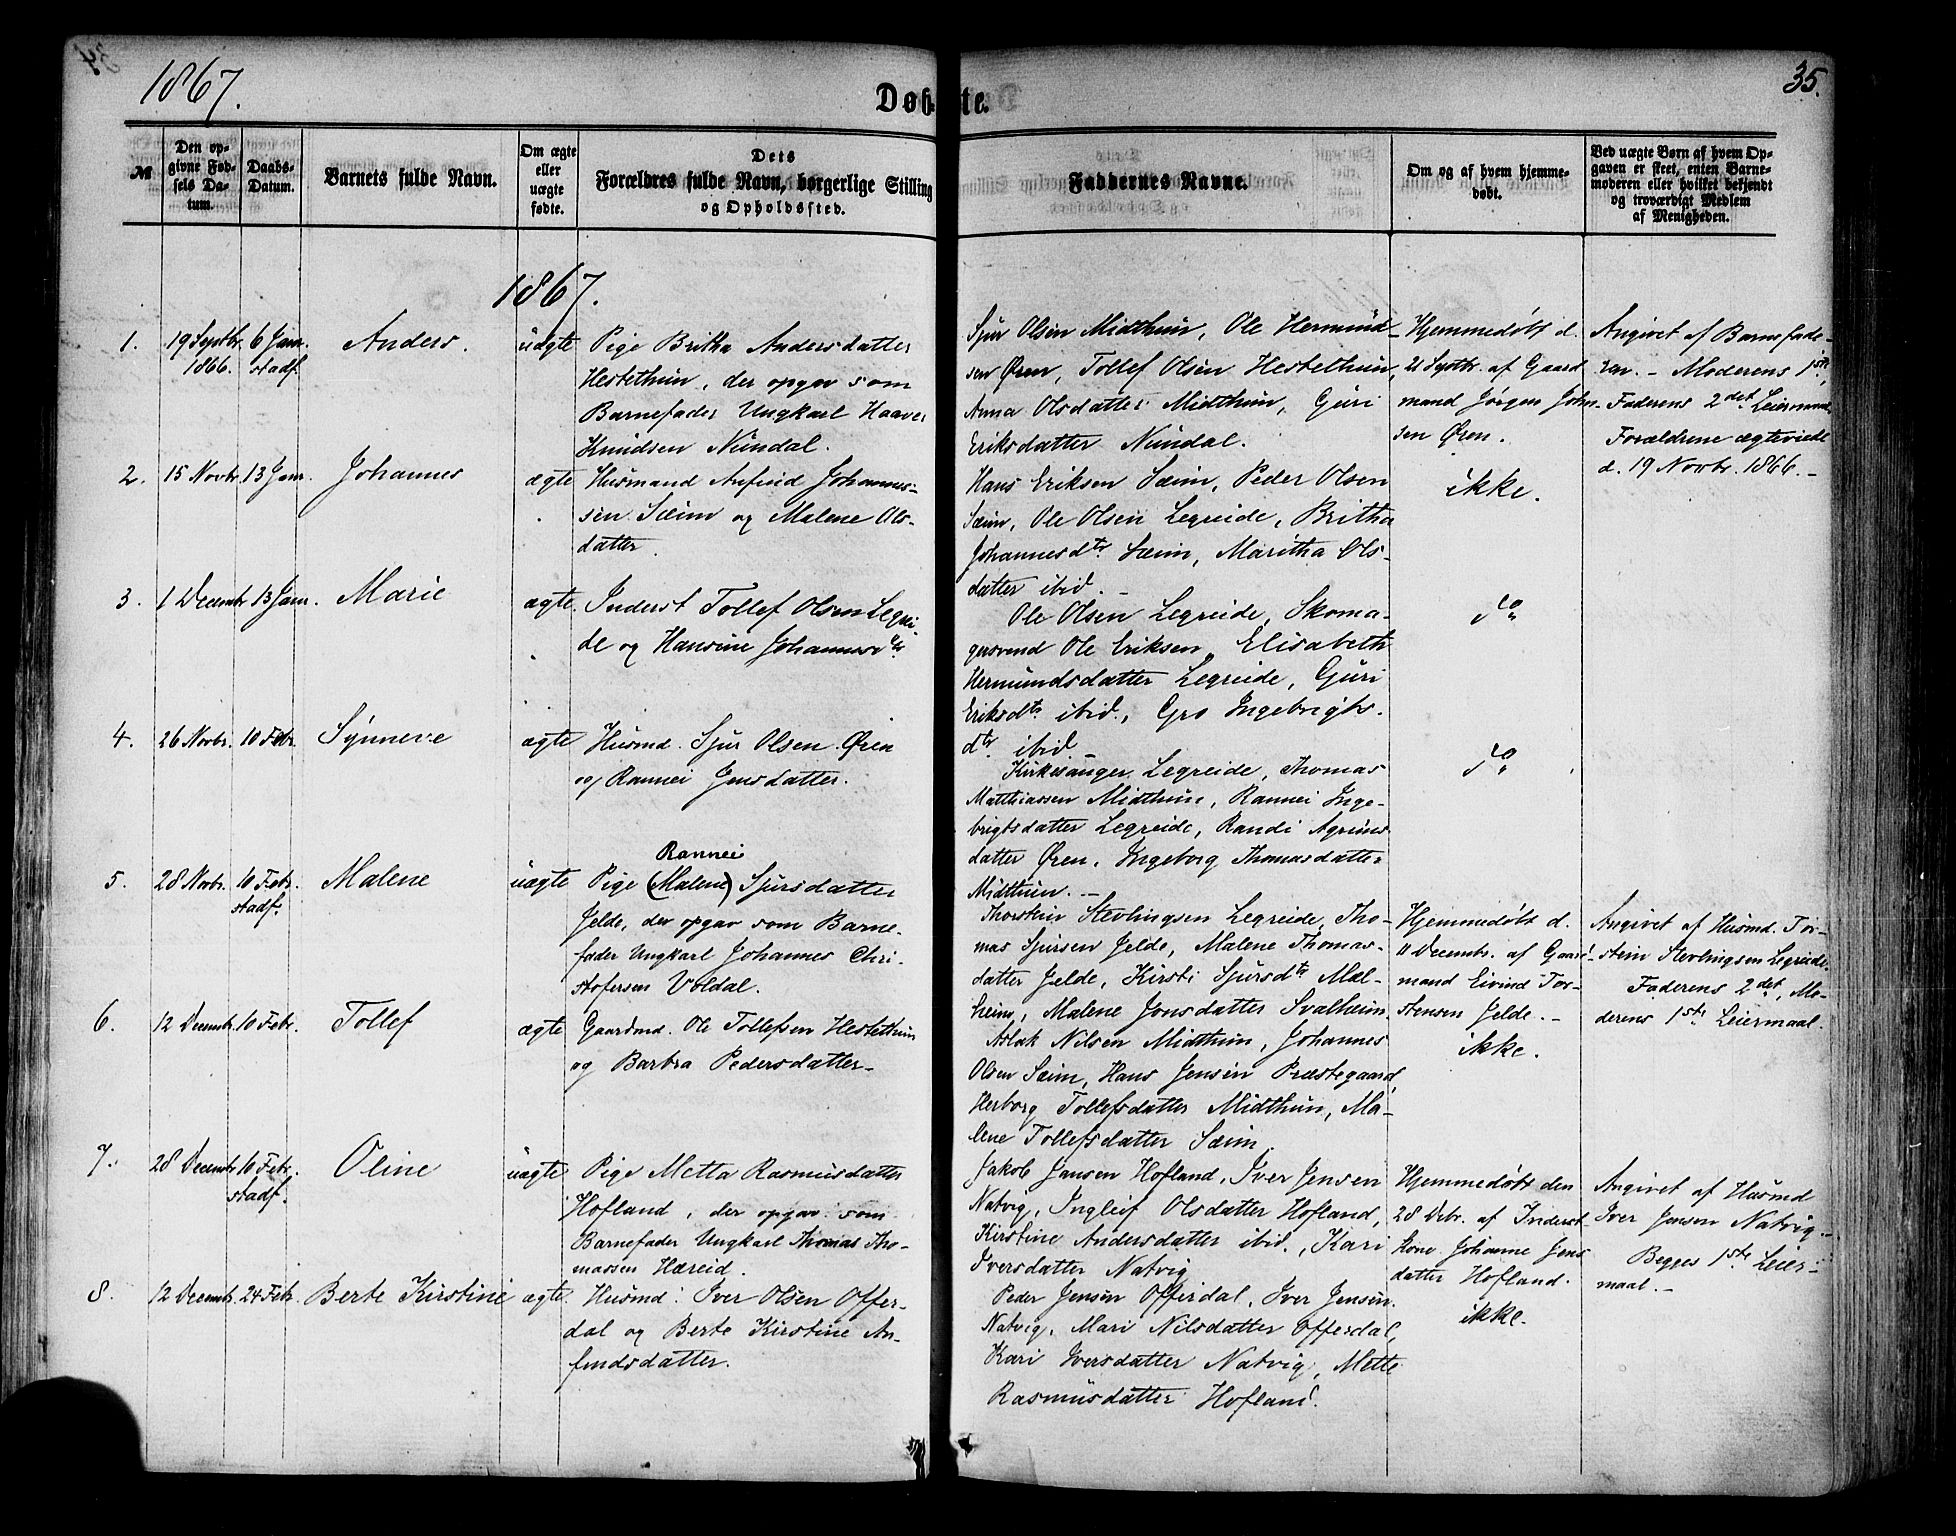 1867.
Døbte.
35.
№
Den opgivne Fødsels Datum.
Daabs-Datum.
Barnets fulde Navn.
Om ægte eller uægte fødte.
Dets Forældres fulde Navn, borgerlige Stilling og Opholdssted.
Faddernes Navne.
Om og af hvem hjemmedøbt.
Ved uægte Børn af hvem Opgaven er skeet, enten Barnemoderen eller hvilket bekjendt og troværdigt Medlem af Menigheden.
1867.
1.
19 Septbr.
1866.
6 Jan.
stadf.
Anders.
uægte
Pige Britha Andersdatter
Hestethun, der opgav som
Barnefader Ungkarl Haaver
Knudsen Nundal.
Sjur Olsen Midthun, Ole Hermund-
sen Øren, Tollef Olsen Hestethun,
Anna Olsdatter Midthun, Guri
Eriksdatter Nundal.
Hjemmedøbt d.
21 Septbr. af Gaard
mand Jørgen John-
sen Øren.
Angivet af Barnefade-
ren. – Moderens 1ste,
Faderens 2det Leiermaal
Forældrene ægteviede
d. 19 Novbr. 1866. –
2.
15 Novbr.
13 Jan.
Johannes
ægte
Husmand Anfind Johannes-
sen Sæim og Malene Ols-
datter.
Hans Eriksen Sæim, Peder Olsen
Sæim, Ole Olsen Legreide, Britha
Johannesdtr Sæim, Maritha Ols-
datter ibid. –
ikke.
3.
1 Decembr
13 Jan.
Marie
ægte.
Inderst Tollef Olsen Legrei-
de og Hansine Johannesdtr
Ole Olsen Legreide, Skoma-
gersvend Ole Eriksen, Elisabeth
Hermundsdatter Legreide, Guri
Eriksdtr ibid., Gro Ingebrigts-
dtr ibid –
do
4.
26 Novbr.
10 Febr
Synneve
ægte
Husmd. Sjur Olsen Øren
og Rannei Jensdatter.
Kirkesanger Legreide, Thomas
Matthiassen Midthun, Rannei Inge-
brigtsdatter Legreide, Randi Agrims
datter Øren, Ingeborg Thomasdatter
Midthun. –
do
5.
28 Novbr.
10 Febr.
stadf.
Malene
uægte
Rannei
Pige (Malene) Sjursdatter
Jelde, der opgav som Barne-
fader Ungkarl Johannes Chri-
stofersen Voldal.
Thorstein Stevlingsen Legreide, Tho-
mas Sjursen Jelde, Malene Thomas-
datter Jelde, Kirsti Sjursdtr Mæl-
heim, Malene Jonsdatter Svalheim
Hjemmedøbt d.
11 Decembr. af Gaard-
mand Eivind Tor-
stensen Jelde. –
Angivet af Husmd. Tor-
stein Stevlingsen Legreide.
Faderens 2det, Mo-
derens 1ste Leiermaal.
6.
12 Decembr
10 Febr.
Tollef
ægte
Gaardmd. Ole Tollefsen Hestethun
og Barbra Pedersdatter –
Aslak Nilsen Midthun, Johannes
Olsen Sæim, Hans Jensen Præstegaard,
Herborg Tollefsdatter Midthun, Ma-
lene Tollefsdatter Sæim.
ikke.
7.
28 Decembr
10 Febr.
stadf.
Oline
uægte
Pige Metta Rasmusdatter
Hofland, der opgav som
Barnefader Ungkarl Thomas Tho-
massen Hæreid.
Jakob Jansen Hofland, Iver Jensen
Natvig, Ingleif Olsdatter Hofland,
Kirstine Andersdatter ibid., Kari
Iversdatter Natvig
Hjemmedøbt den
28 Dcbr. af Inderst
kone Johanne Jens
datter Hofland.
Angivet af Husmd
Iver Jensen Natvig. –
Begges 1ste Leier-
maal. –
8.
12 Decembr.
24 Febr.
Berte Kirstine
ægte.
Husmd. Iver Olsen Offer-
dal og Berte Kirstine An-
findsdatter.
Peder Jensen Offerdal, Iver Jensen
Natvig, Mari Nilsdatter Offerdal,
Kari Iversdatter Natvig, Mette
Rasmusdatter Hofland.
ikke.